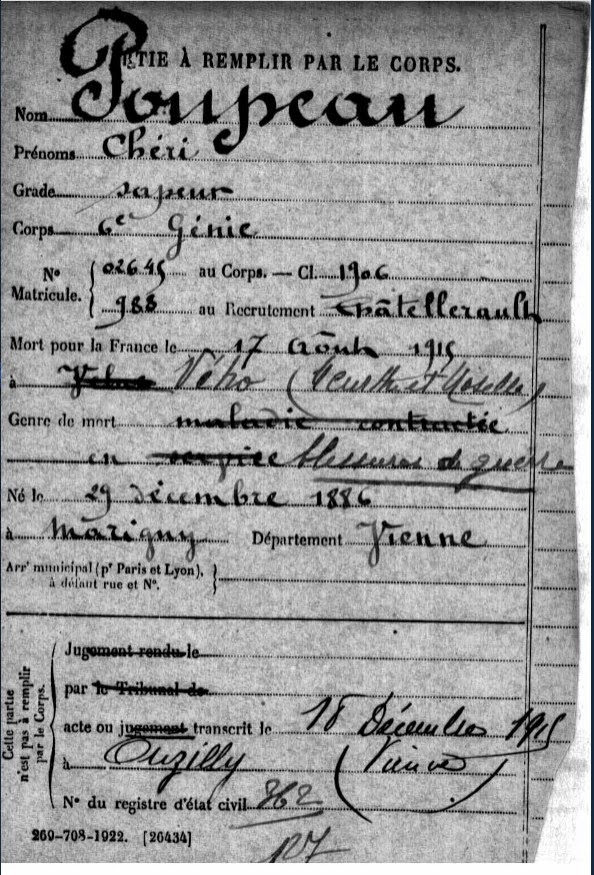 PARTIE À REMPLIR PAR LE CORPS.
Nom Poupeau
Prénoms Chéri
Grade sapeur
Corps 6e Génie
N° Matricule. 02645 au Corps. — Cl. 1906
988 au Recrutement Châtellerault
Mort pour la France le 17 Août 1915
à Vého (Meurthe et Moselle)
Genre de mort maladie contractée
en service blessures de guerre
Né le 29 décembre 1886
à Marigny Département Vienne
Arrt municipal (pr Paris et Lyon), à défaut rue et N°.
Cette partie n'est pas à remplir par le Corps.
Jugement rendu le
par le Tribunal de
acte ou jugement transcrit le 18 Décembre 1915
à Ouzilly (Vienne)
N° du registre d'état civil
127
269-708-1922. [26434]